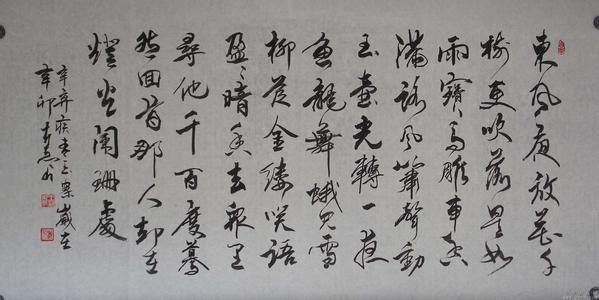 東風夜放花千
樹更吹落星如
雨寶馬雕車香
滿路鳳簫聲動
玉壺光轉一夜
魚龍舞蛾兒雪
柳黃金縷笑語
盈〻暗香去衆里
尋他千百度驀
然回首那人却在
燈火闌珊處
辛弃疾青玉案歲在
辛卯